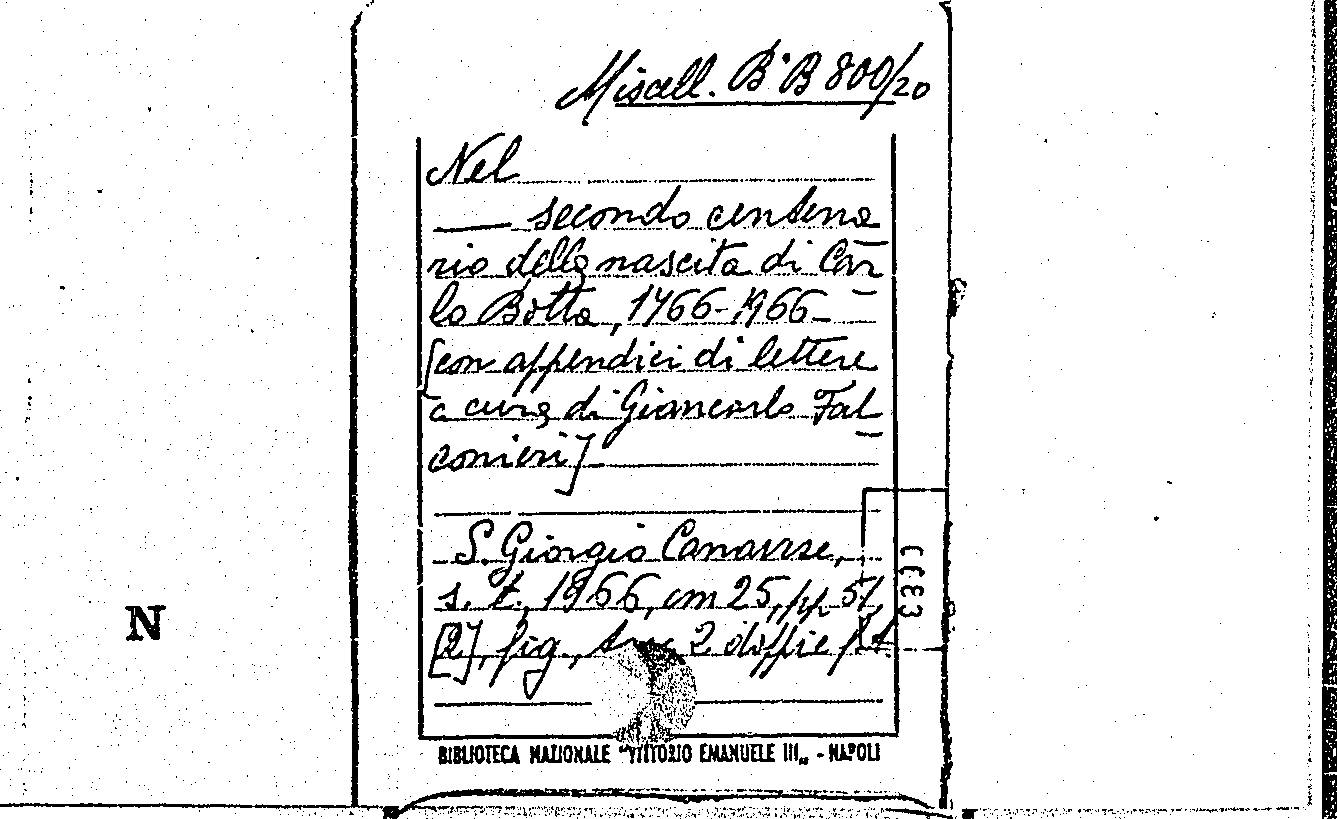 Miscell. B·B 800/20
Nel
— secondo centena
rio della nascita di Car
lo Botta, 1766-1966-
[con appendici di lettere
a cura di Giancarlo Fal
conieri]
S. Giorgio Canavese,
s. t., 1966, cm 25, pp 51,
[2], fig., 2 doppie
N
BIBLIOTECA NAZIONALE "VITTORIO EMANUELE III„ - NAPOLI